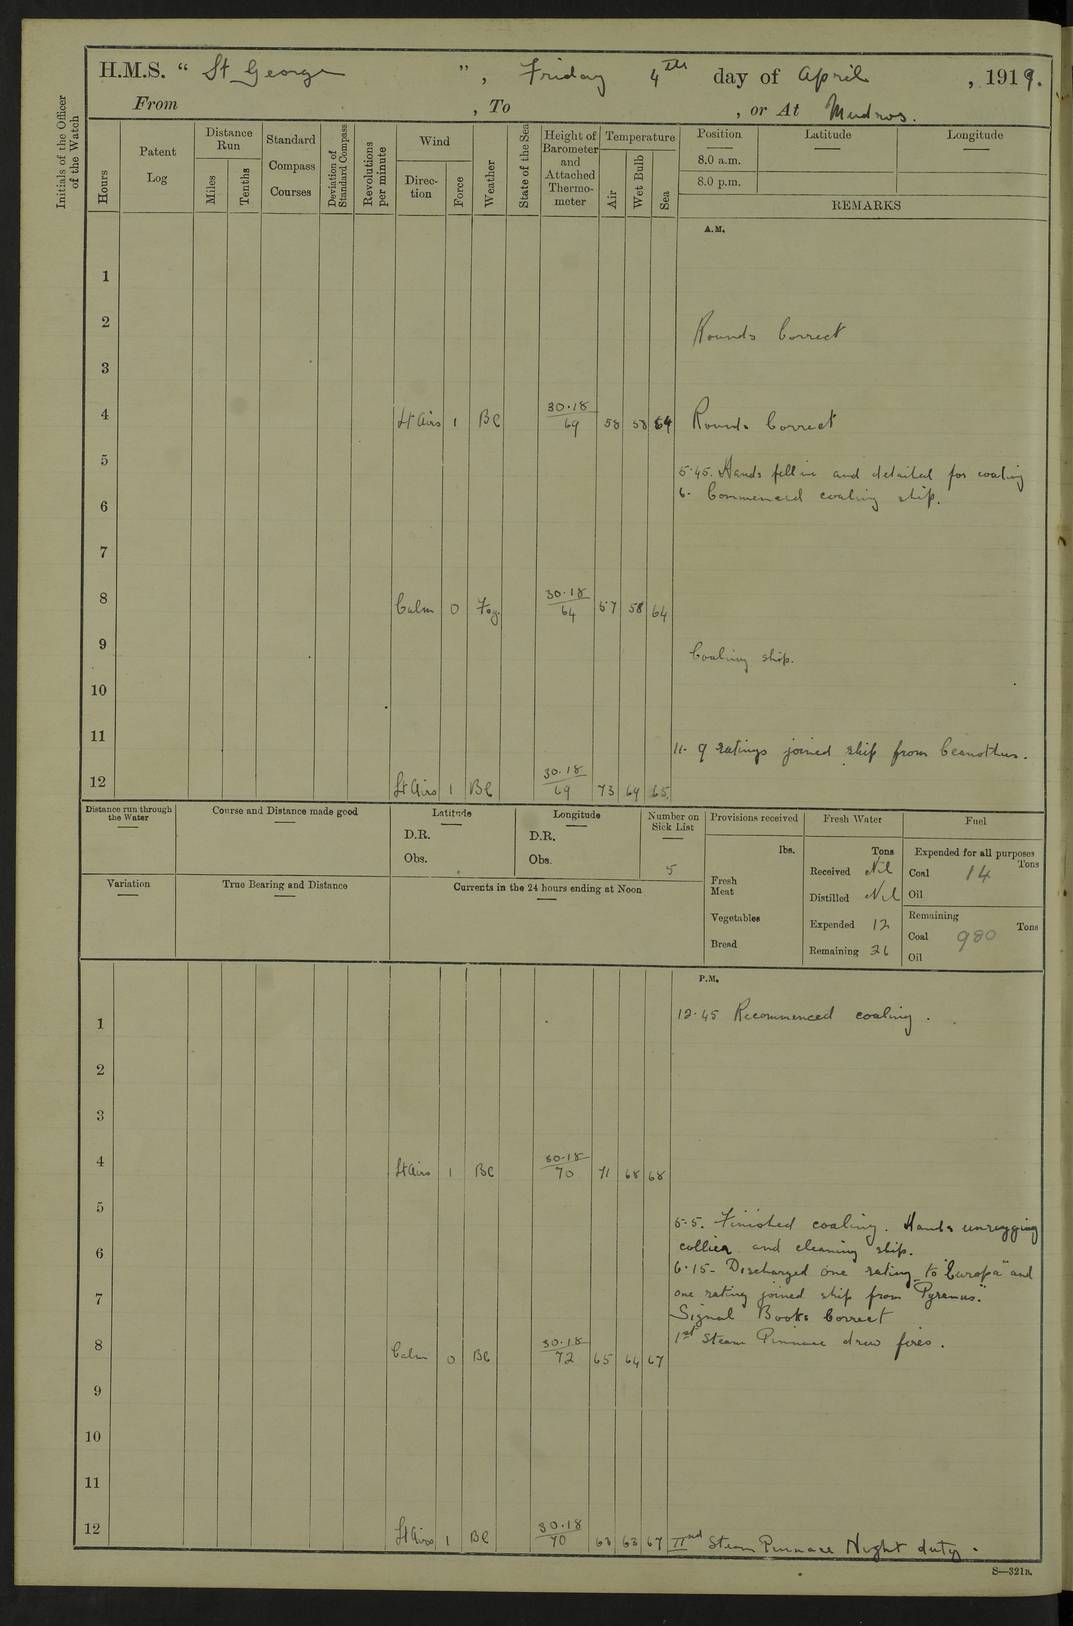 H.M.S. “ St George ”, Friday 4th day of April , 1919.
From , To , or At Mudros.
Initials of the Officer of the Watch
Hours
Patent Log
Distance Run
Miles
Tenths
Standard Compass Courses
Deviation of Standard Compass
Revolutions per minute
Wind
Direction
Force
Weather
State of the Sea
Height of Barometer and Attached Thermometer
Temperature
Air
Wet Bulb
Sea
Position
8.0 a.m.
8.0 p.m.
Latitude
Longitude
REMARKS
A.M.
1
2 Rounds Correct
3
4 Lt Airs 1 BC 30.18 / 69 58 58 64 Rounds Correct
5 5.45. Hands fell in and detailed for coaling
6 6. Commenced coaling ship.
7
8 Calm 0 Fog. 30.18 / 64 57 58 64
9 Coaling ship.
10
11 11. 9 ratings joined ship from Ceanothus.
12 Lt Airs 1 BC 30.18 / 69 73 69 65
Distance run through the Water
Course and Distance made good
Latitude
D.R.
Obs.
Longitude
D.R.
Obs.
Number on Sick List
5
Provisions received
lbs.
Fresh Meat
Vegetables
Bread
Fresh Water
Tons
Received Nil
Distilled Nil
Expended 12
Remaining 26
Fuel
Expended for all purposes
Tons
Coal 14
Oil
Remaining
Tons
Coal 980
Oil
Variation
True Bearing and Distance
Currents in the 24 hours ending at Noon
P.M.
1 12.45 Recommenced coaling.
2
3
4 Lt Airs 1 BC 30.18 / 70 71 68 68
5 5.5. Finished coaling. Hands unrigging
6 collier and cleaning ship.
6.15- Discharged one rating to "Europa" and
7 one rating joined ship from "Pyramus."
Signal Books Correct
8 Calm 0 BC 30.18 / 72 65 64 67 1st Steam Pinnace drew fires.
9
10
11
12 Lt Airs 1 BC 30.18 / 70 63 63 67 IInd Steam Pinnace Night duty.
S—321B.